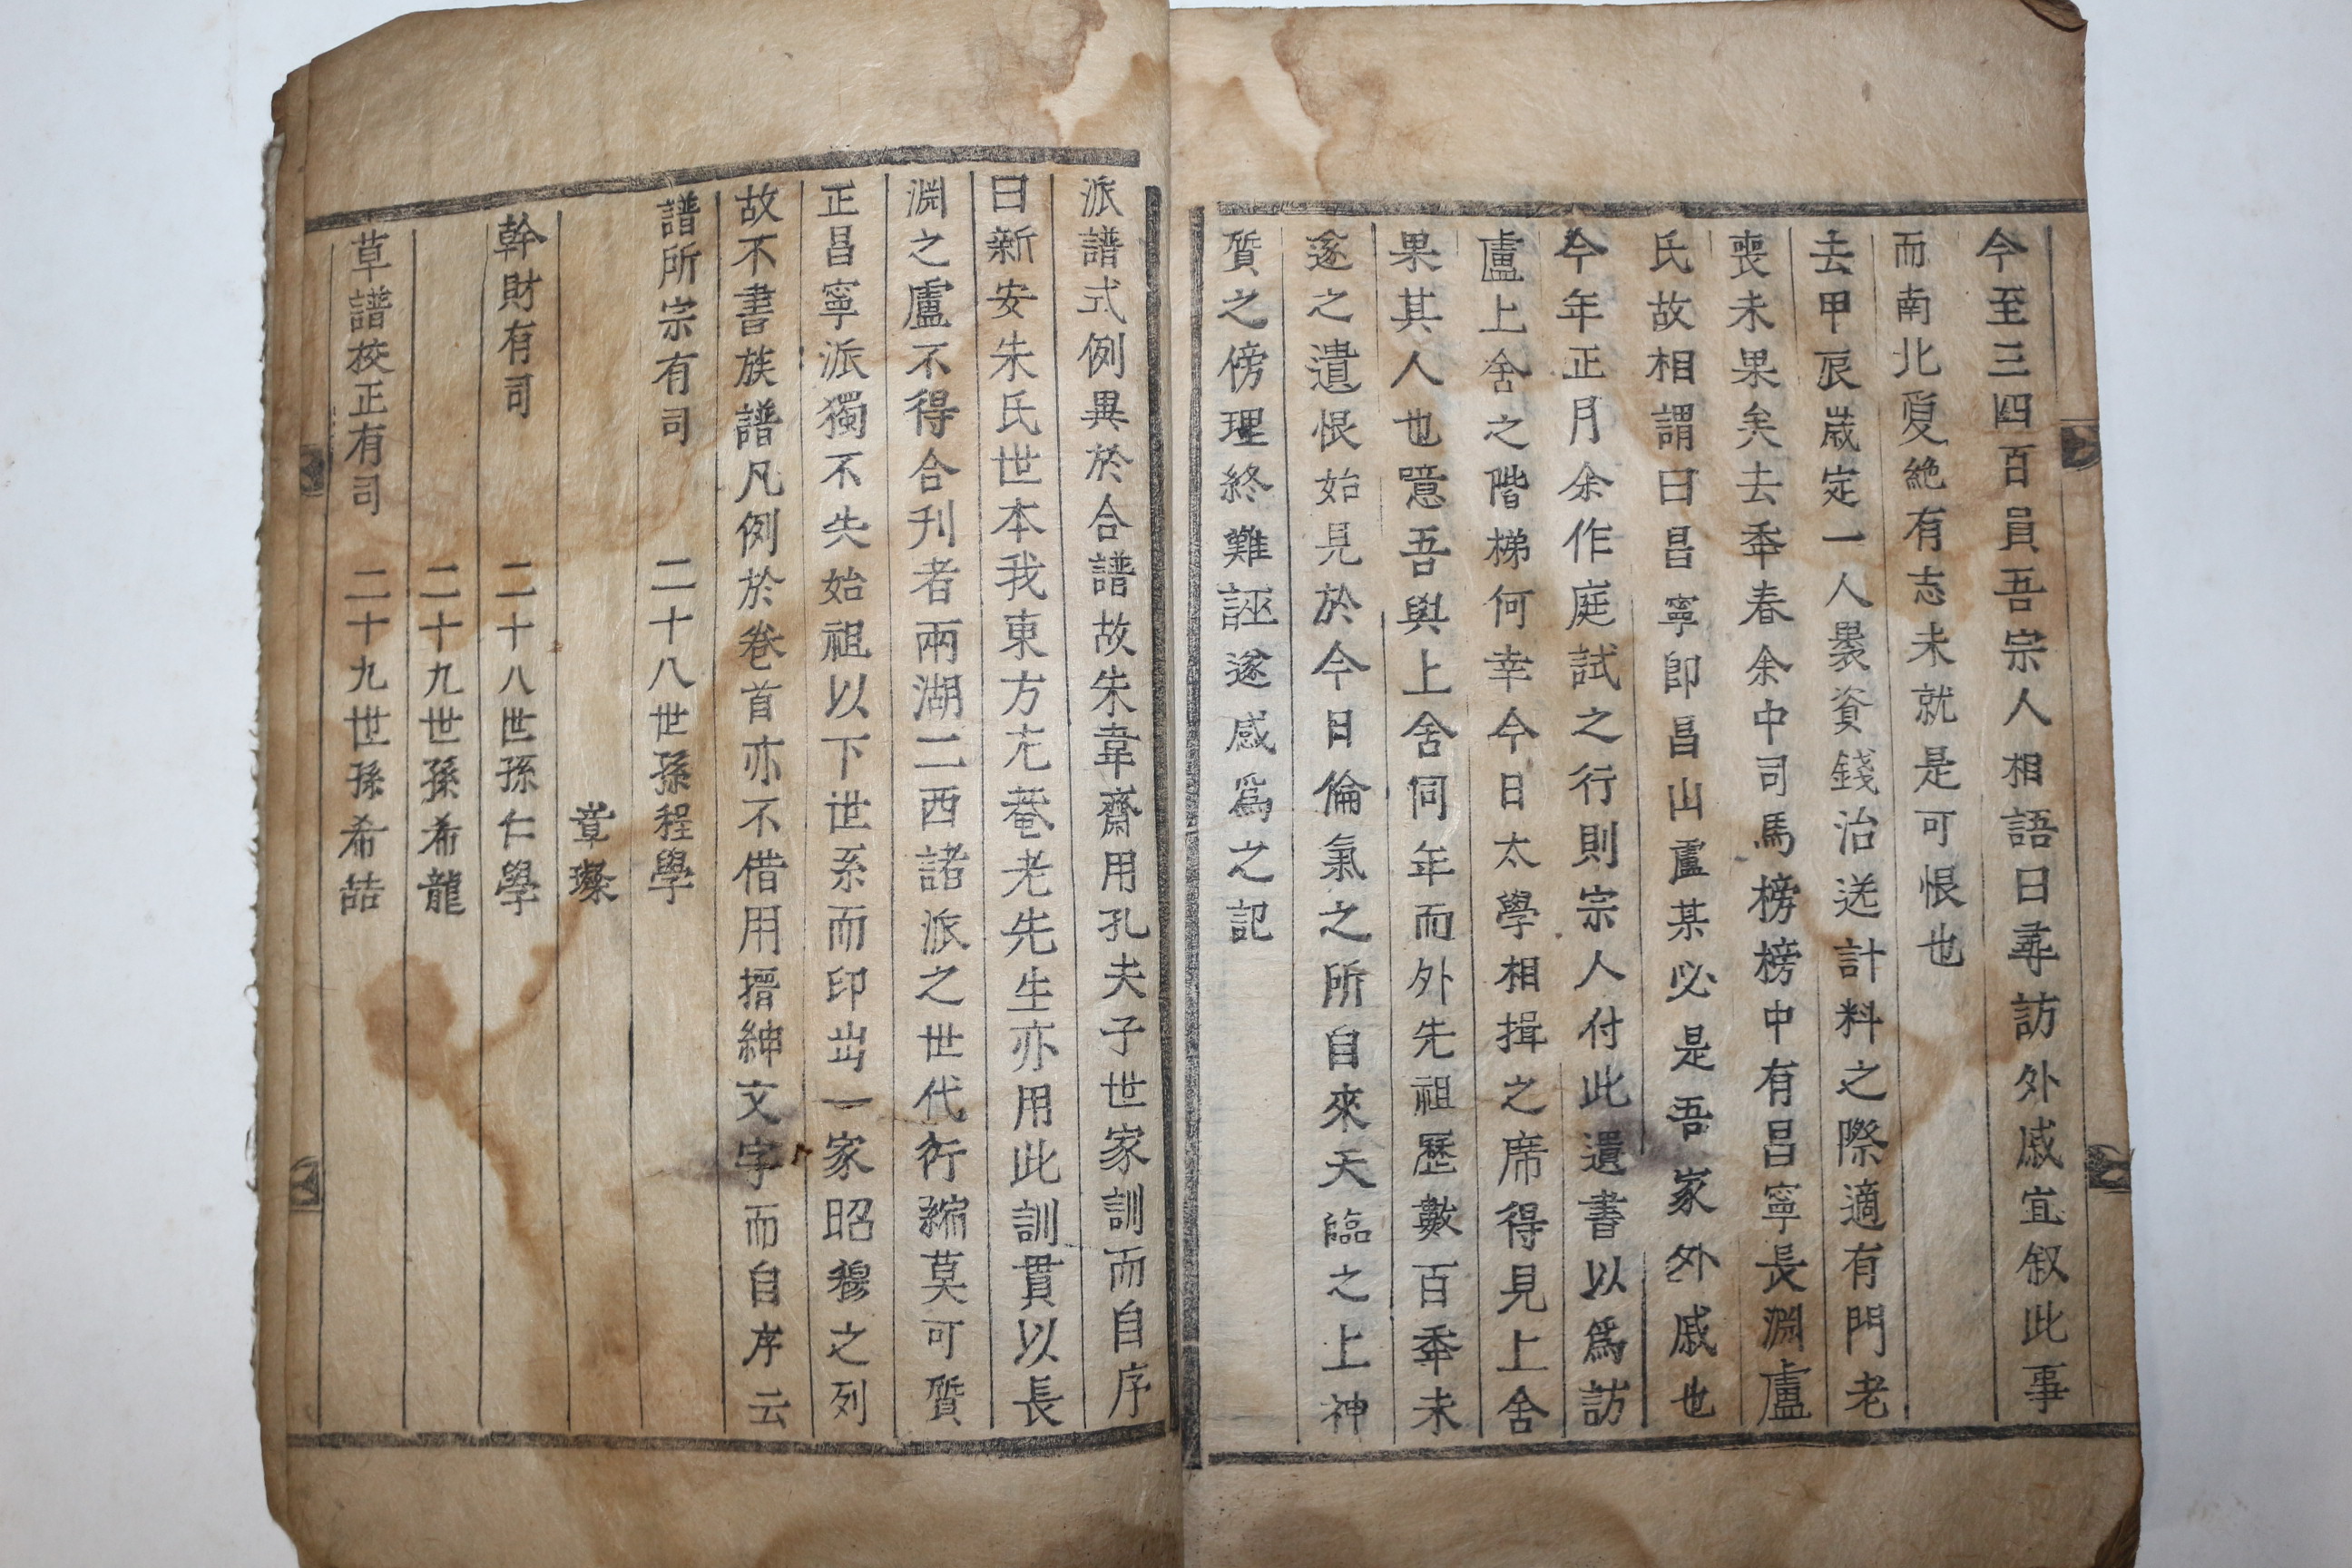 今至三四百員吾宗人相語曰尋訪外戚宜叙此事
而南北夐絶有志未就是可恨也
去甲辰歲定一人褁資錢治送計料之際適有門老
喪未果矣去秊春余中司馬榜榜中有昌寧長淵盧
氏故相謂曰昌寧卽昌山盧某必是吾家外戚也
今年正月余作庭試之行則宗人付此遺書以爲訪
盧上舍之階梯何幸今日太學相揖之席得見上舍
果其人也噫吾與上舍同年而外先祖歷數百秊未
遂之遺恨始見於今日倫氣之所自來天臨之上神
質之傍理終難誣遂感爲之記
派譜式例異於合譜故朱韋齋用孔夫子世家訓而自序
曰新安朱氏世本我東方尤菴老先生亦用此訓貫以長
淵之盧不得合刋者兩湖二西諸派之世代行縮莫可質
正昌寧派獨不失始祖以下世系而印出一家昭穆之列
故不書族譜凡例於卷首亦不借用搢紳文字而自序云
譜所宗有司 二十八世孫程學
章璨
幹財有司 二十八世孫仁學
二十九世孫希龍
草譜校正有司 二十九世孫希喆